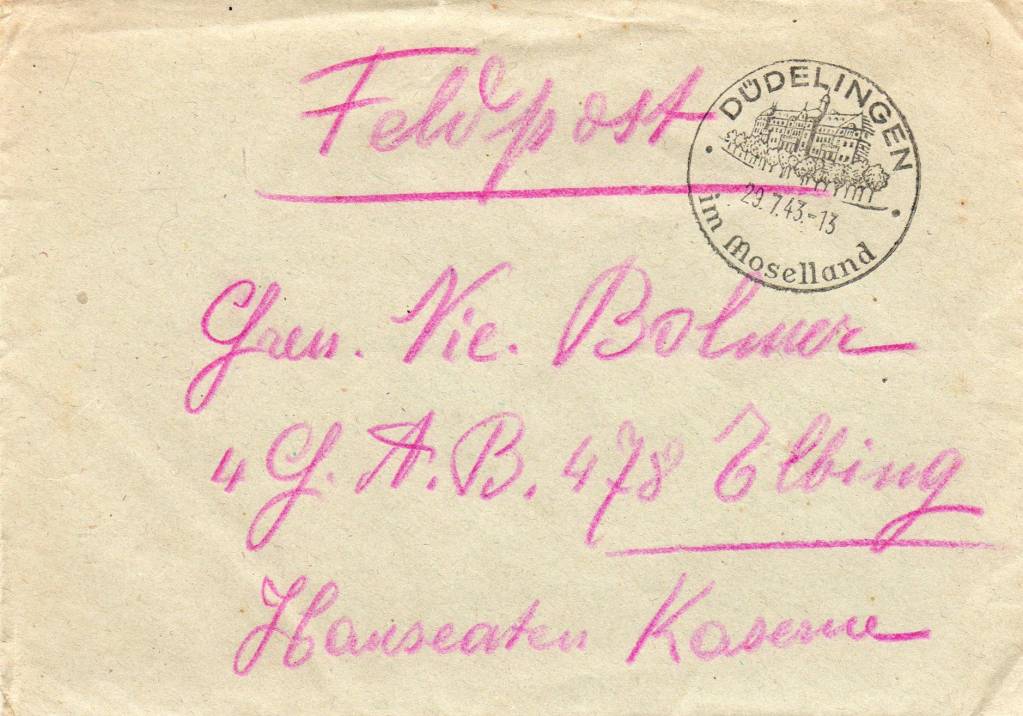 Feldpost
DÜDELINGEN
29.7.43.-13
im Moselland
Gren. Nic. Bolmer
4 G. A. B. 478 Elbing
Hanseaten Kaserne